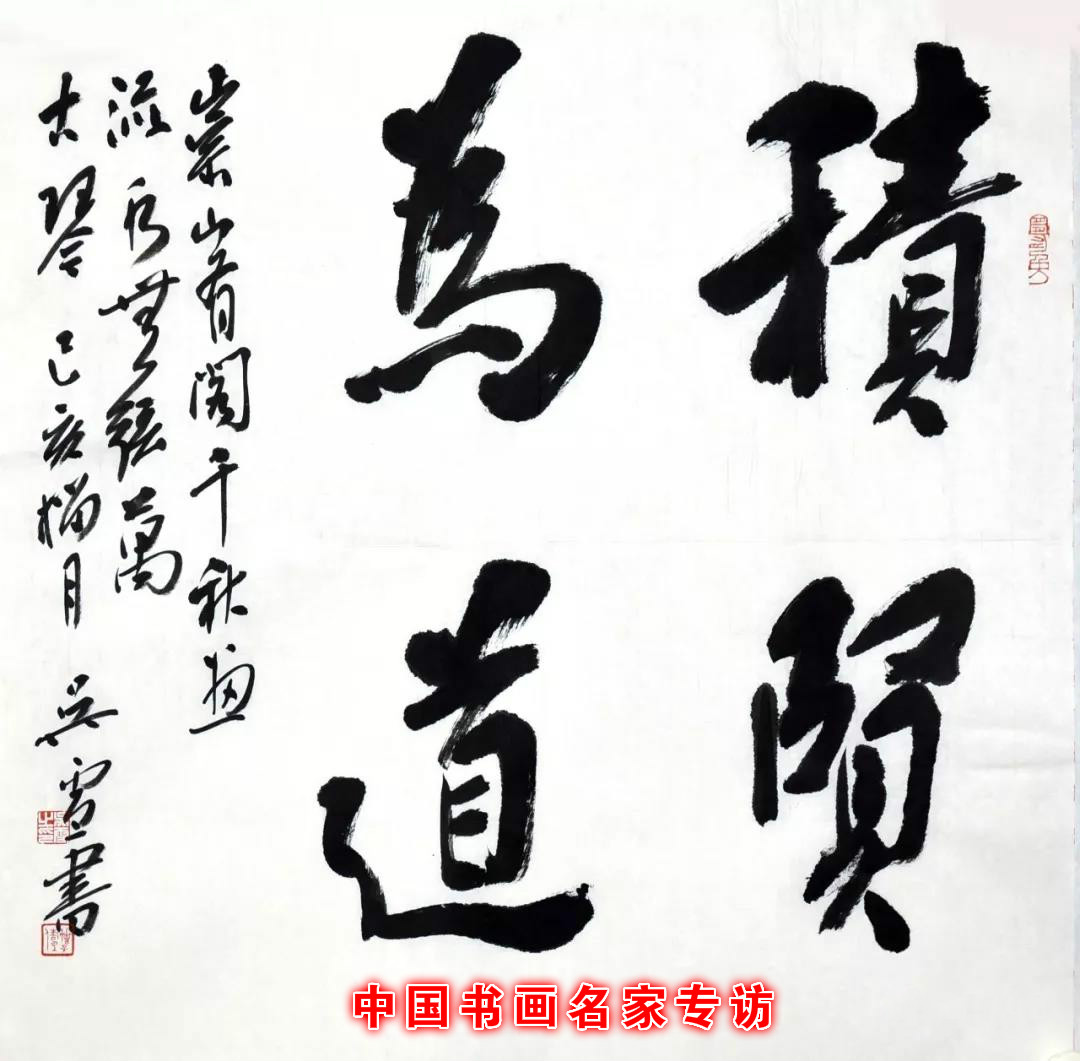 積賢
為道
崇山有閣千秋畫
流水無絃萬
古琴 己亥榴月 吳雪書
中国书画名家专访